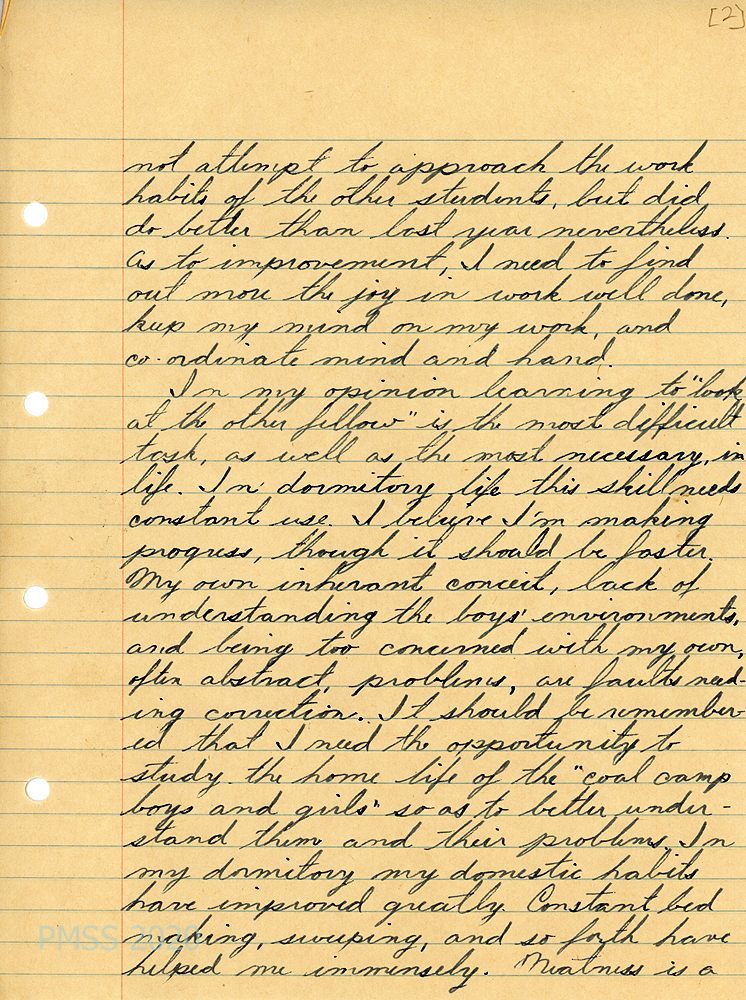 [2]
not attempt to approach the work
habits of the other students, but did
do better than last year nevertheless.
As to improvement, I need to find
out more the joy in work well done,
keep my mind on my work, and
co-ordinate mind and hand.
In my opinion learning to "look
at the other fellow" is the most difficult
task, as well as the most necessary, in
life. In dormitory life this skill needs
constant use. I believe I'm making
progress, though it should be faster.
My own inherant conceit, lack of
understanding the boys' environments,
and being too concerned with my own,
often abstract, problems, are faults need-
ing correction. It should be remember-
ed that I need the opportunity to
study the home life of the "coal camp
boys and girls" so as to better under-
stand them and their problems. In
my dormitory my domestic habits
have improved greatly. Constant bed
making, sweeping, and so forth have
helped me immensely. Neatness is a
PMSS 2020